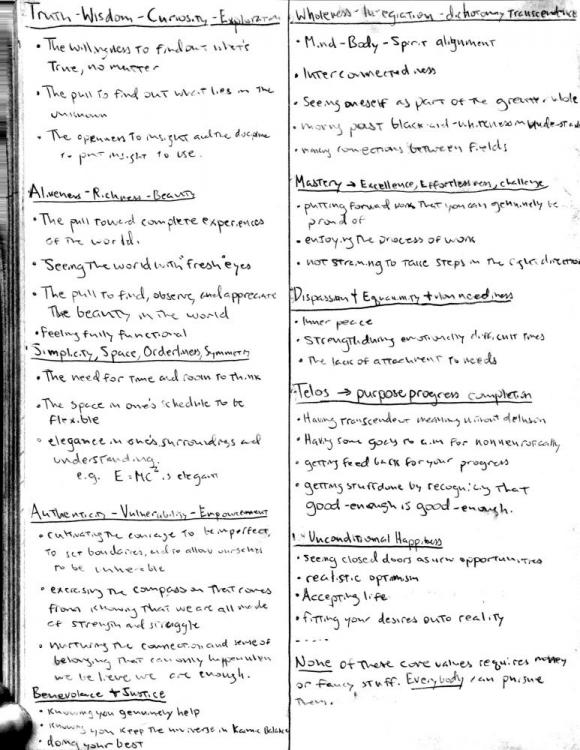 Truth - Wisdom - Curiosity - Exploration
• The willingness to find out what's
True, no matter
• The pull to find out what lies in the
unknown
• The openness to insight and the discipline
to put insight to use.
Aliveness - Richness - Beauty
• The pull toward complete experiences
of the world.
• Seeing the world with "fresh" eyes
• The pull to find, observe, and appreciate
The beauty in the world
• Feeling fully functional
Simplicity, Space, Orderliness, Symmetry
• The need for time and room to think
• The space in one's schedule to be
flexible
• elegance in one's surroundings and
understanding.
e.g. E=MC² is elegant
Authenticity - Vulnerability - Empowerment
• cultivating the courage to be imperfect,
to set boundaries, and to allow ourselves
to be vulnerable
• exercising the compassion that comes
from knowing that we are all made
of strength and struggle
• nurturing the connection and sense of
belonging that can only happen when
we believe we are enough.
Benevolence & Justice
• knowing you genuinely help
• knowing you keep the universe in Karmic Balance
• doing your best
Wholeness - Integration - dichotomy Transcendence
• Mind-Body-Spirit alignment
• Interconnectedness
• Seeing oneself as part of the greater whole
• moving past black-and-whiteness in understanding
• making connections between fields
Mastery → Excellence, Effortlessness, challenge
• putting forward work that you can genuinely be
proud of
• enjoying the process of work
• not straining to take steps in the right direction
Dispassion & Equanimity & non neediness
• Inner peace
• Strength during emotionally difficult times
• The lack of attachment to needs
Telos → purpose progress completion
• Having transcendent meaning without delusion
• Having some goals to aim for nonneurotically
• getting feedback for your progress
• getting stuff done by recognizing that
good-enough is good-enough.
Unconditional Happiness
• seeing closed doors as new opportunities
• realistic optimism
• Accepting life
• fitting your desires onto reality
.....
None of these core values requires money
or fancy stuff. Everybody can pursue
them.